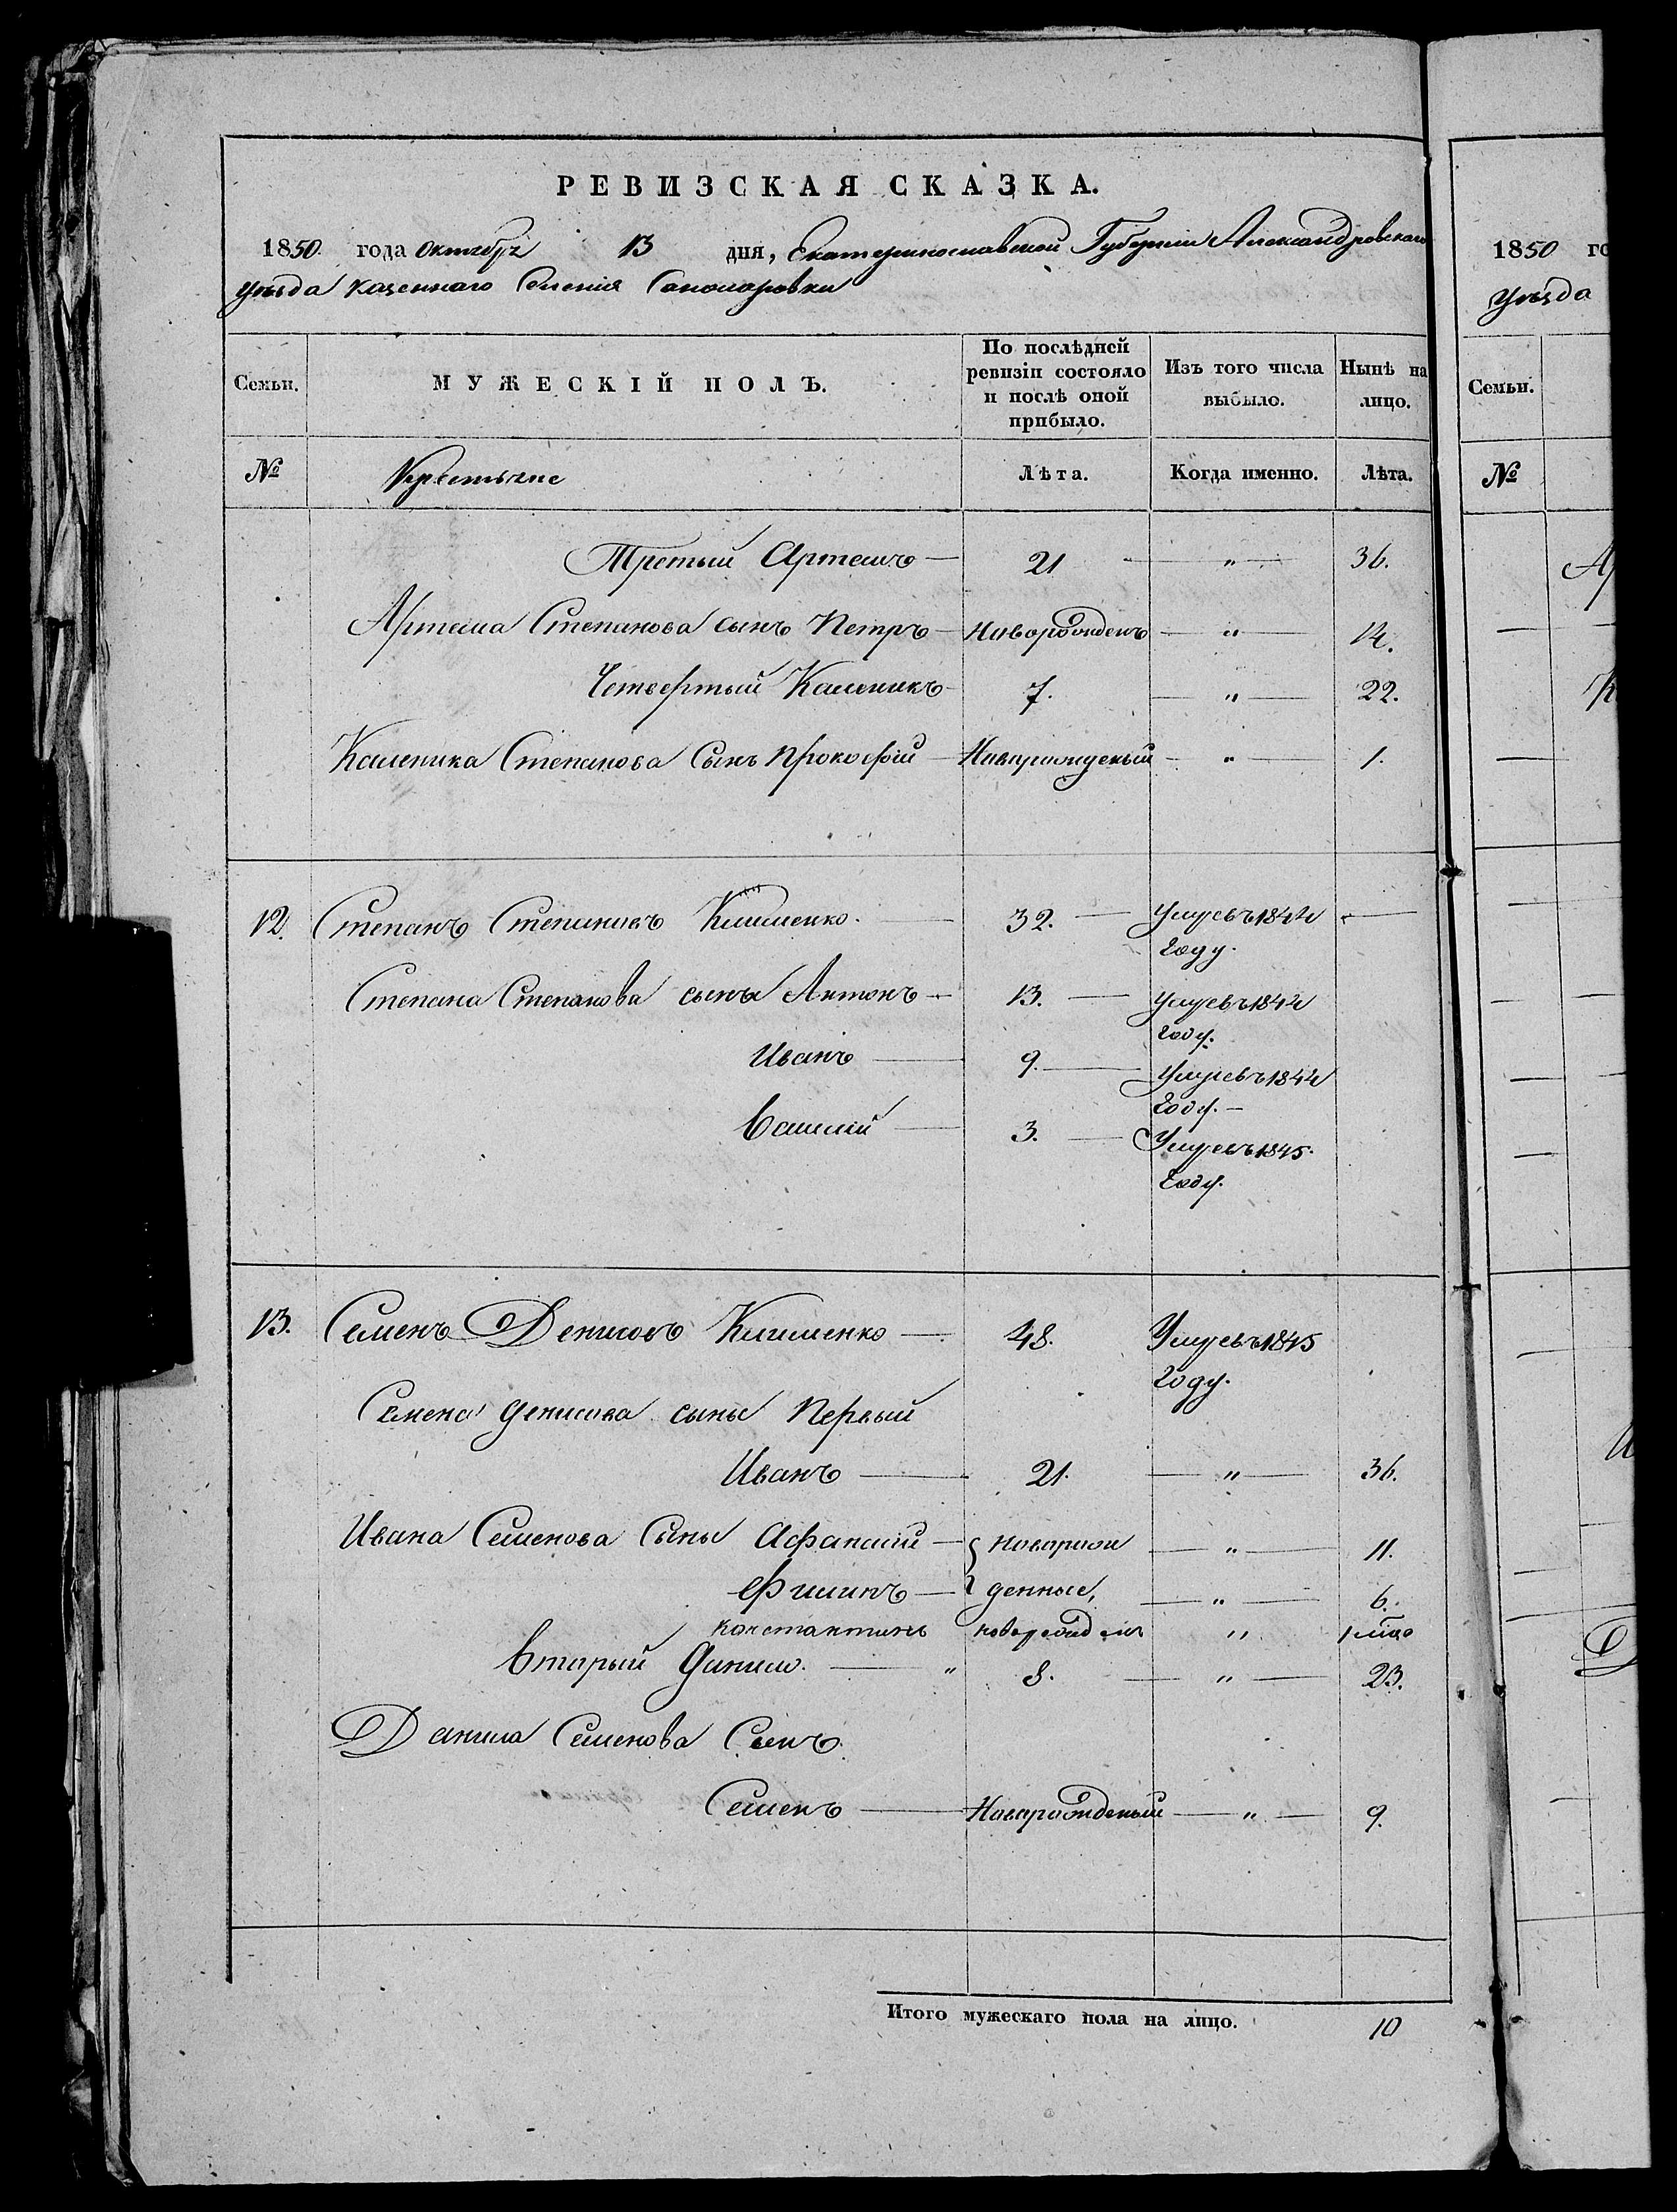 РЕВИЗСКАЯ СКАЗКА.
1850 года Октября 13 дня, Екатеринославской Губернии Александровскаго
уѣзда Казеннаго Селенія
Семьи. МУЖЕСКІЙ ПОЛЪ. По послѣдней ревизіи состояло и послѣ оной прибыло. Изъ того числа выбыло. Нынѣ на лицо.
№ Крестьяне Лѣта. Когда именно. Лѣта.
Третьій Артемъ — 21 — „ — 36.
Артема Степанова сынъ Петръ — Новорожденъ — „ — 14.
Четвертый Каленикъ 7. — „ — 22.
Каленика Степанова Сынъ Прокофій — Новорожденый — „ — 1.
12. Степанъ Степановъ Клименко. — 32. — Умре въ 1844 —
году.
Степана Степанова сынъ Антонъ — 13. — Умре въ 1844
году.
Иванъ — 9. — Умре въ 1844
году. —
Василій — 3. — Умре въ 1845.
году.
13. Семенъ Денисовъ Клименко — 48. Умре въ 1845
году.
Семена Денисова сыны Первый
Иванъ — 21. — „ — 36.
Ивана Семенова Сыны Афанасій — { Новорож — „ — 11.
Филипъ — } денные, — „ — 6.
Константинъ новорожденъ „
Вторый Данило. — „ 8. — „ — 23.
Данила Семенова Сынъ
Семенъ — Новорожденый — „ — 9.
Итого мужескаго пола на лицо. 10
1850 го
Уѣзда
Семьи.
№